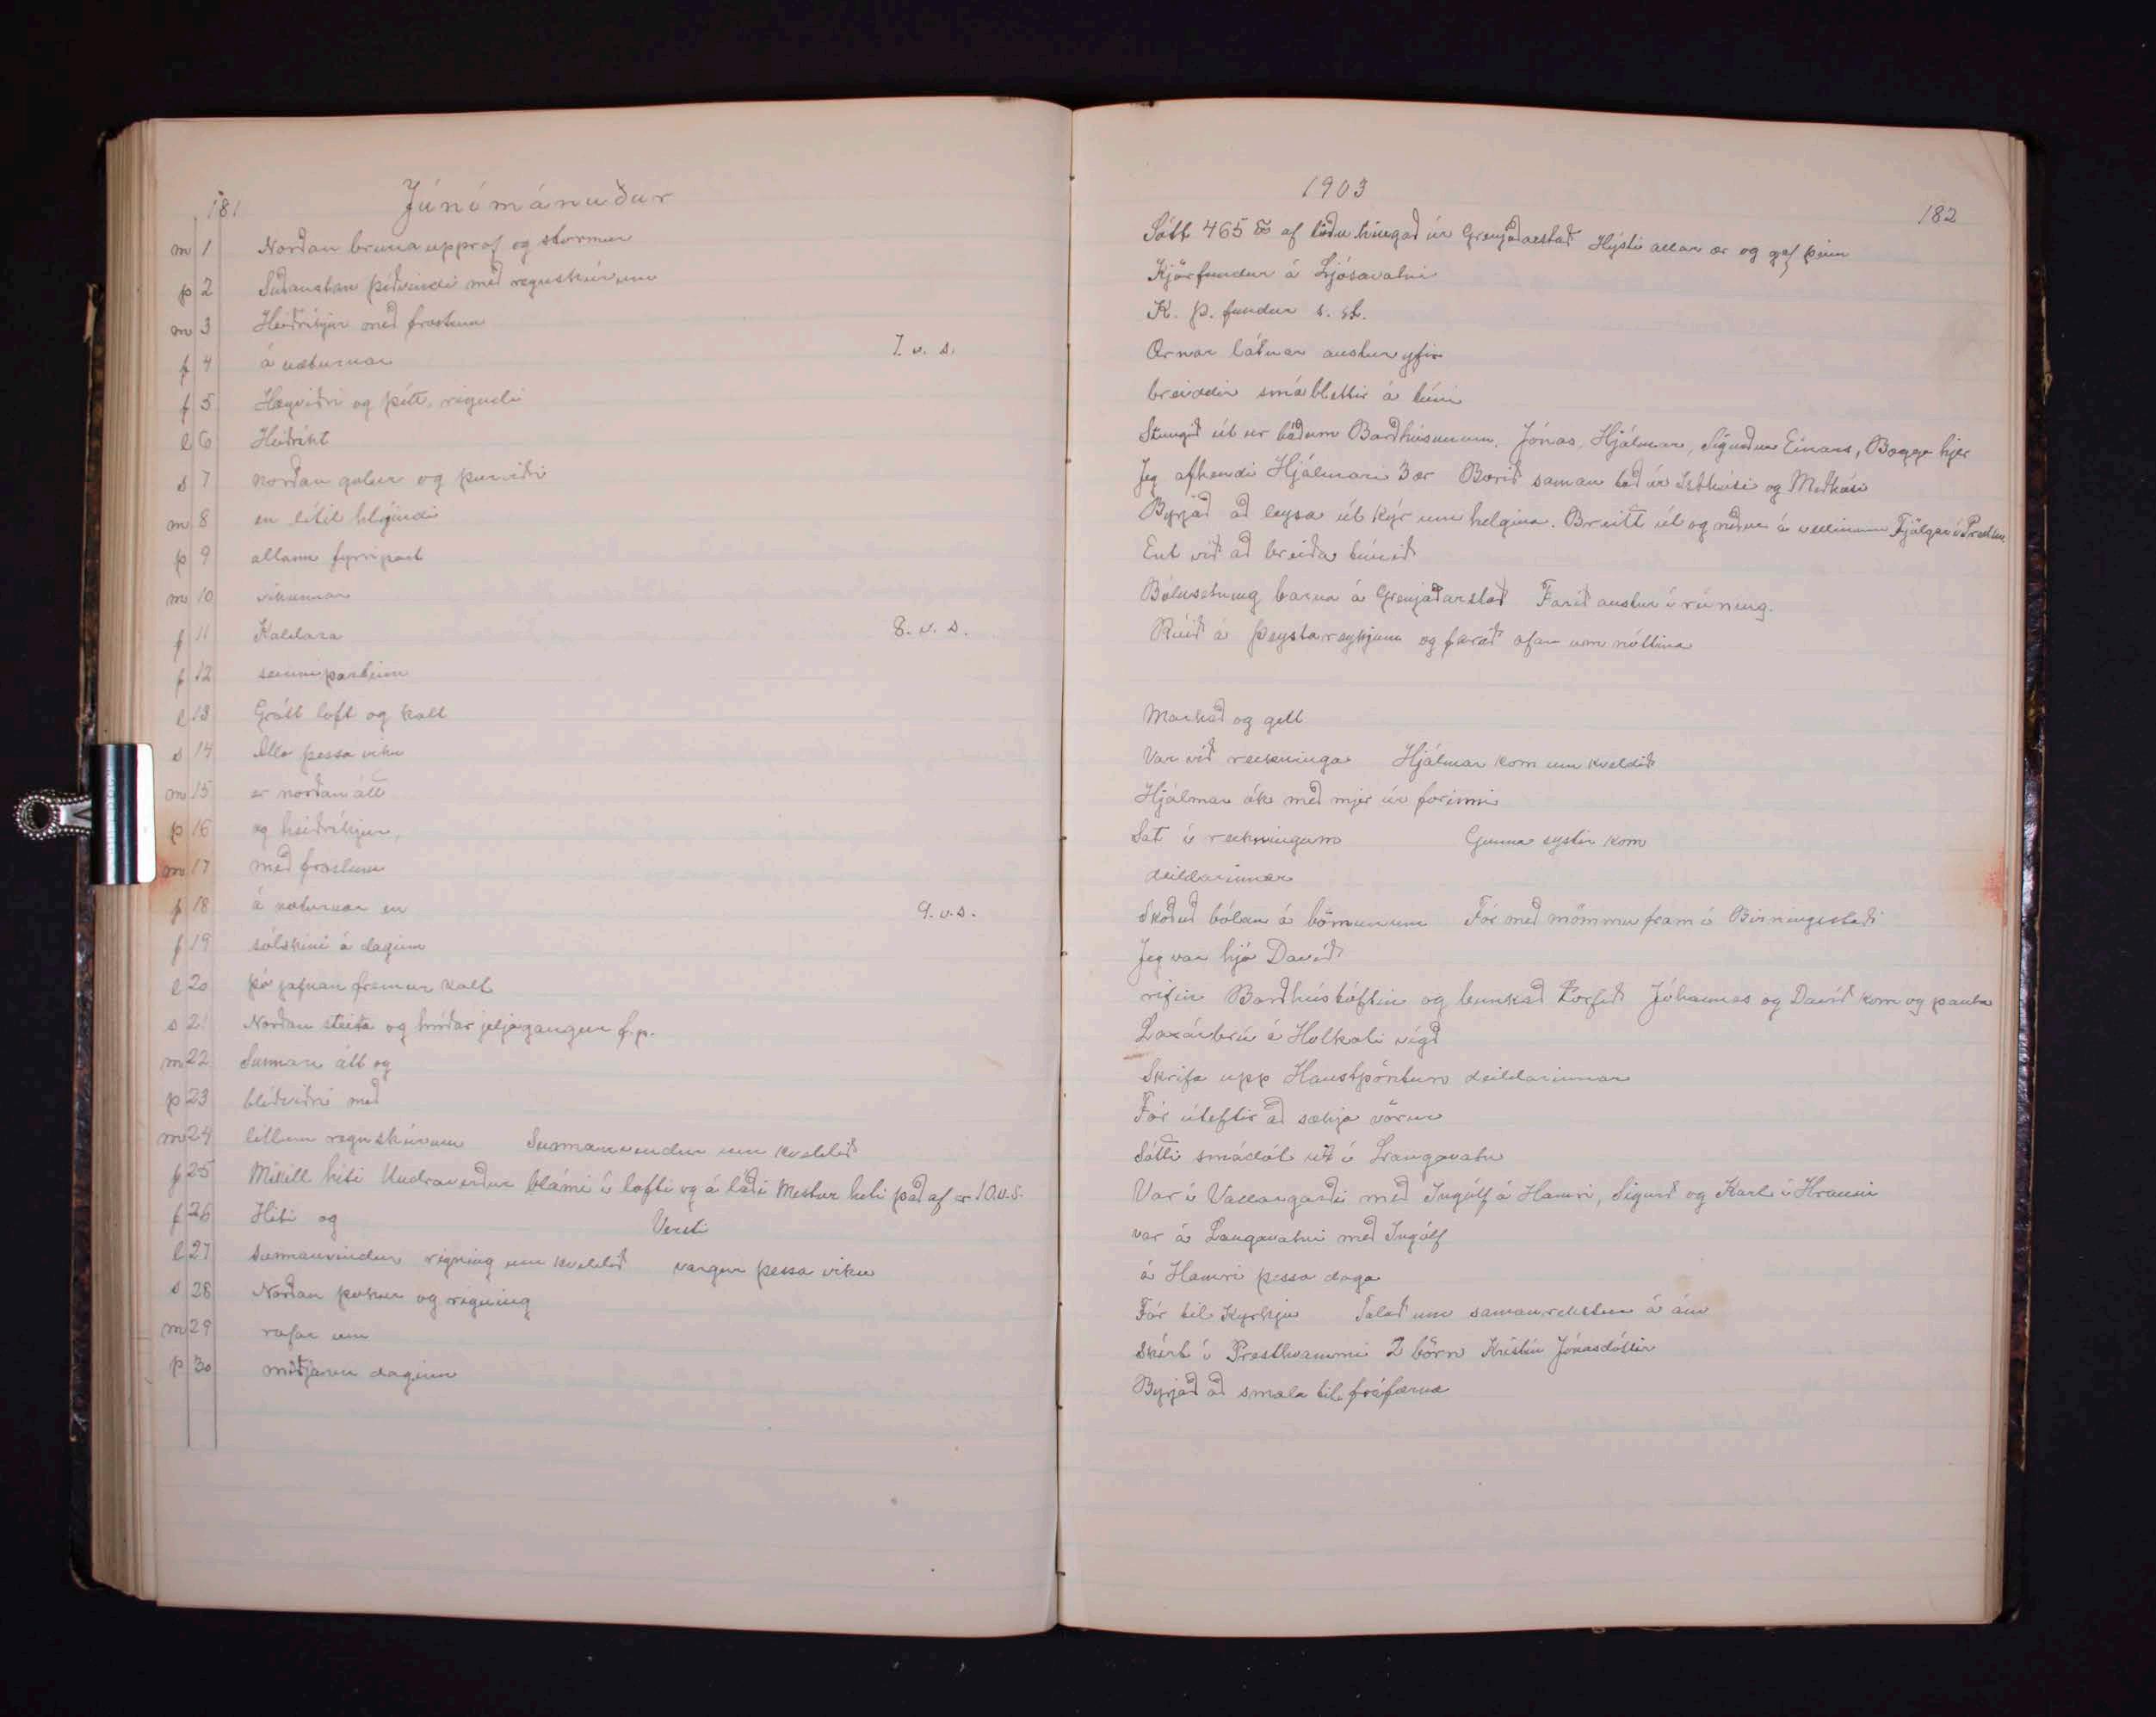 181
Júnímánuður
m 1 Norðan bruna upprof og stormur
þ 2 Suðaustan þíðvindi með regnskúrum
m 3 Heiðríkjur með frostum
f 4 á næturnar 7. v. s.
f 5 Hægviðri og þétt rigndi
l 6 Heiðríkt
s 7 norðan golur og þurviðri
m 8 en lítil hlýindi
þ 9 allann fyrripart
m 10 vikunnar
f 11 Kaldara 8. v. s.
f 12 seinnipartinn
l 13 Grátt loft og kalt
s 14 Alla þessa viku
m 15 er norðan átt
þ 16 og heiðríkjur,
m 17 með frostum
f 18 á næturnar en 9. v. s.
f 19 sólskini á daginn
l 20 þó jafnan fremur kalt
s 21 Norðan steita og hríðar jeljagangur f.p.
m 22 Sunnan átt og
þ 23 blíðviðri með
m 24 litlum regnskúrum Sunnanvindur um kveldið
f 25 Mikill hiti Undraverður blámi í lofti og á láði Mestur hiti það af er 10.v.s.
f 26 Hiti og Versti
l 27 sunnanvindur rigning um kveldið vargur þessa viku
s 28 Norðan þokur og rigning
m 29 rofar um
þ 30 miðjann daginn
1903
182
Sótt 465 ℔ af töðu hingað úr Grenjaðarstað Hýsti allar ær og gaf þeim
Kjörfundur á Ljósavatni
K. Þ. fundur s. st.
Ærnar látnar austur yfir
breiddir smáblettir á túni
Stungið út úr báðum Barðhúsunum. Jónas, Hjálmar, Sigurður Einars, Bogga hjer
Jeg afhendi Hjálmari 3 ær Borið saman tað úr Isthúsi og Miðhúsi
Byrjað að leysa út kýr um helgina. Breitt út og niður á vellinum Fjölgar í Presthv.
Ent við að breiða túnið
Bólusetning barna á Grenjaðarstað Farið austur í rúning.
Rúið á Þeystareykjum og farið ofan um nóttina
Markað og gelt
Var við reikninga Hjálmar kom um kveldið
Hjálmar ók með mjer úr forinni
Sat í reikningum Gunna systir kom
deildarinnar
Skoðuð bólan á börnunum Fór með mömmu fram í Birningsstaði
Jeg var hjá Davíð
rifin Barðhústóftin og bunkað Torfið Jóhannes og Davíð kom og panta
Laxárbrú á Halkoti vígð
Skrifa upp Haustpöntun deildarinnar
Fór úteftir að sækja vörur
Sótti smádót út í Langavatn
Var í Vallangarði með Ingólf á Hamri, Sigurð og Karl í Hrauni
var á Langavatni með Ingólf
á Hamri þessa daga
Fór til Kyrkju Talað um samanrekstur á ám
skírt í Presthvammi 2 börn Kristín Jónasdóttir
Byrjað að smala til fráfærna